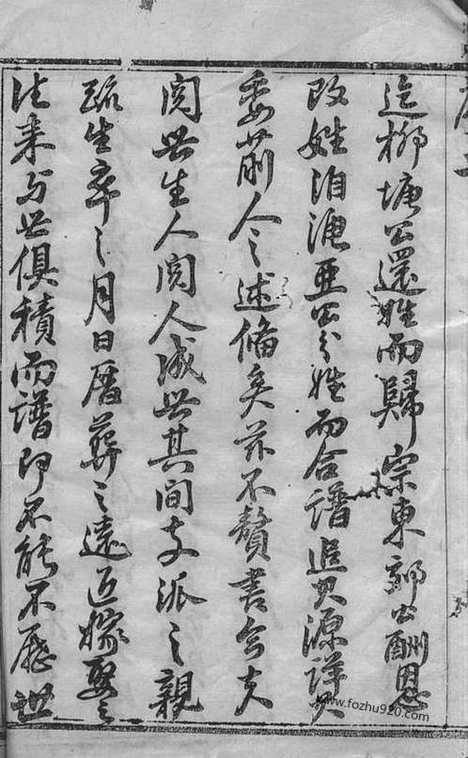 迄柳塘公還姓而歸宗東郭公酬恩
改姓洎漣亞公分姓而合譜追其源詳其
委前人之述備矣茲不贅書今夫
閱世生人閱人成世其間支派之親
疏生卒之月日厝葬之遠近嫁娶之
往来与世俱積而譜即不能不歷世
www.fozhu920.com